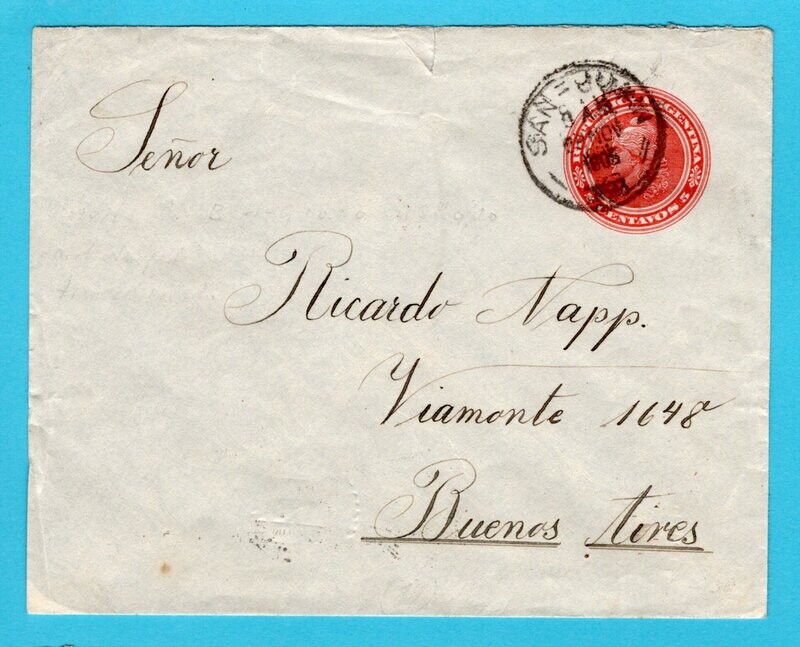 SAN JUAN
REPUBLICA ARGENTINA
5 CENTAVOS 5
Señor
Ricardo Napp.
Viamonte 1648
Buenos Aires